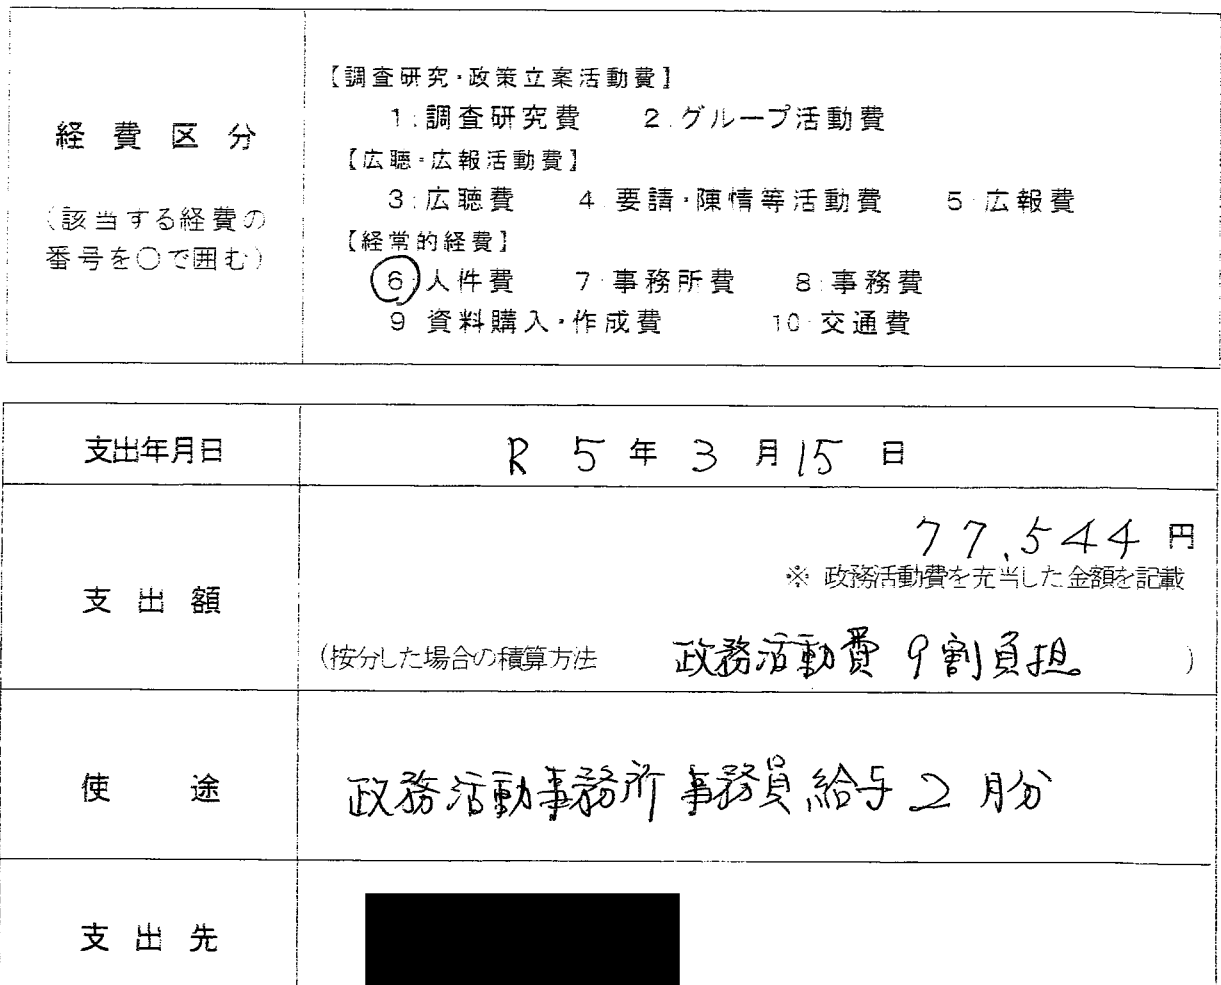 【調査研究・政策立案活動費】
経費区分
1 調査研究費 2 グループ活動費
【広聴・広報活動費】
3 広聴費 4 要請・陳情等活動費 5 広報費
(該当する経費の
番号を○で囲む)
【経常的経費】
6 人件費 7 事務所費 8 事務費
9 資料購入・作成費 10 交通費
支出年月日 R 5 年 3 月 15 日
支出額
77,544 円
※ 政務活動費を充当した金額を記載
(按分した場合の積算方法 政務活動費 9割負担 )
使途 政務活動事務所 事務員給与 2月分
支出先